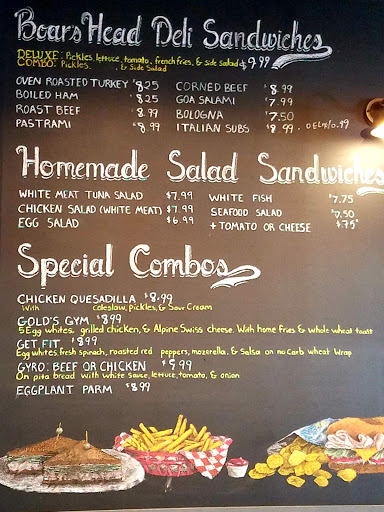 Boar's Head Deli Sandwiches
DELUXE: Pickles, lettuce, tomato, french fries, & side salad $9.99
COMBO: Pickles & Side Salad
OVEN ROASTED TURKEY $8.25 CORNED BEEF $8.99
BOILED HAM $8.25 GOA SALAMI $7.99
ROAST BEEF 8.99 BOLOGNA $7.50
PASTRAMI $8.99 ITALIAN SUBS $8.99
Homemade Salad Sandwiches
WHITE MEAT TUNA SALAD $7.99 WHITE FISH $7.75
CHICKEN SALAD (WHITE MEAT) $7.99 SEAFOOD SALAD $7.50
EGG SALAD $6.99 + TOMATO OR CHEESE $75¢
Special Combos
CHICKEN QUESADILLA $8.99
With Coleslaw, Pickles, & Sour Cream
GOLD'S GYM $8.99
5 Egg whites, grilled chicken, & Alpine Swiss cheese. With home fries & whole wheat toast
GET FIT $8.99
Egg whites, fresh spinach, roasted red peppers, mozerella, & Salsa on no Carb wheat Wrap
GYRO: BEEF OR CHICKEN $9.99
On pita bread with white sauce, lettuce, tomato, & onion
EGGPLANT PARM $8.99